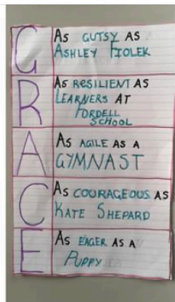 G
AS GUTSY AS
ASHLEY FIOLEK
R
AS RESILIENT AS
LEARNERS AT
FORDELL
SCHOOL
A
AS AGILE AS A
GYMNAST
C
AS COURAGEOUS AS
KATE SHEPARD
E
AS EAGER AS A
PUPPY